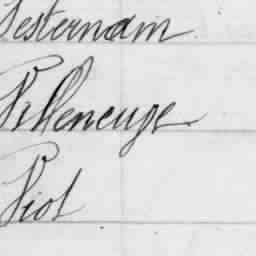 Pesternam
Pelleneuze
Piot